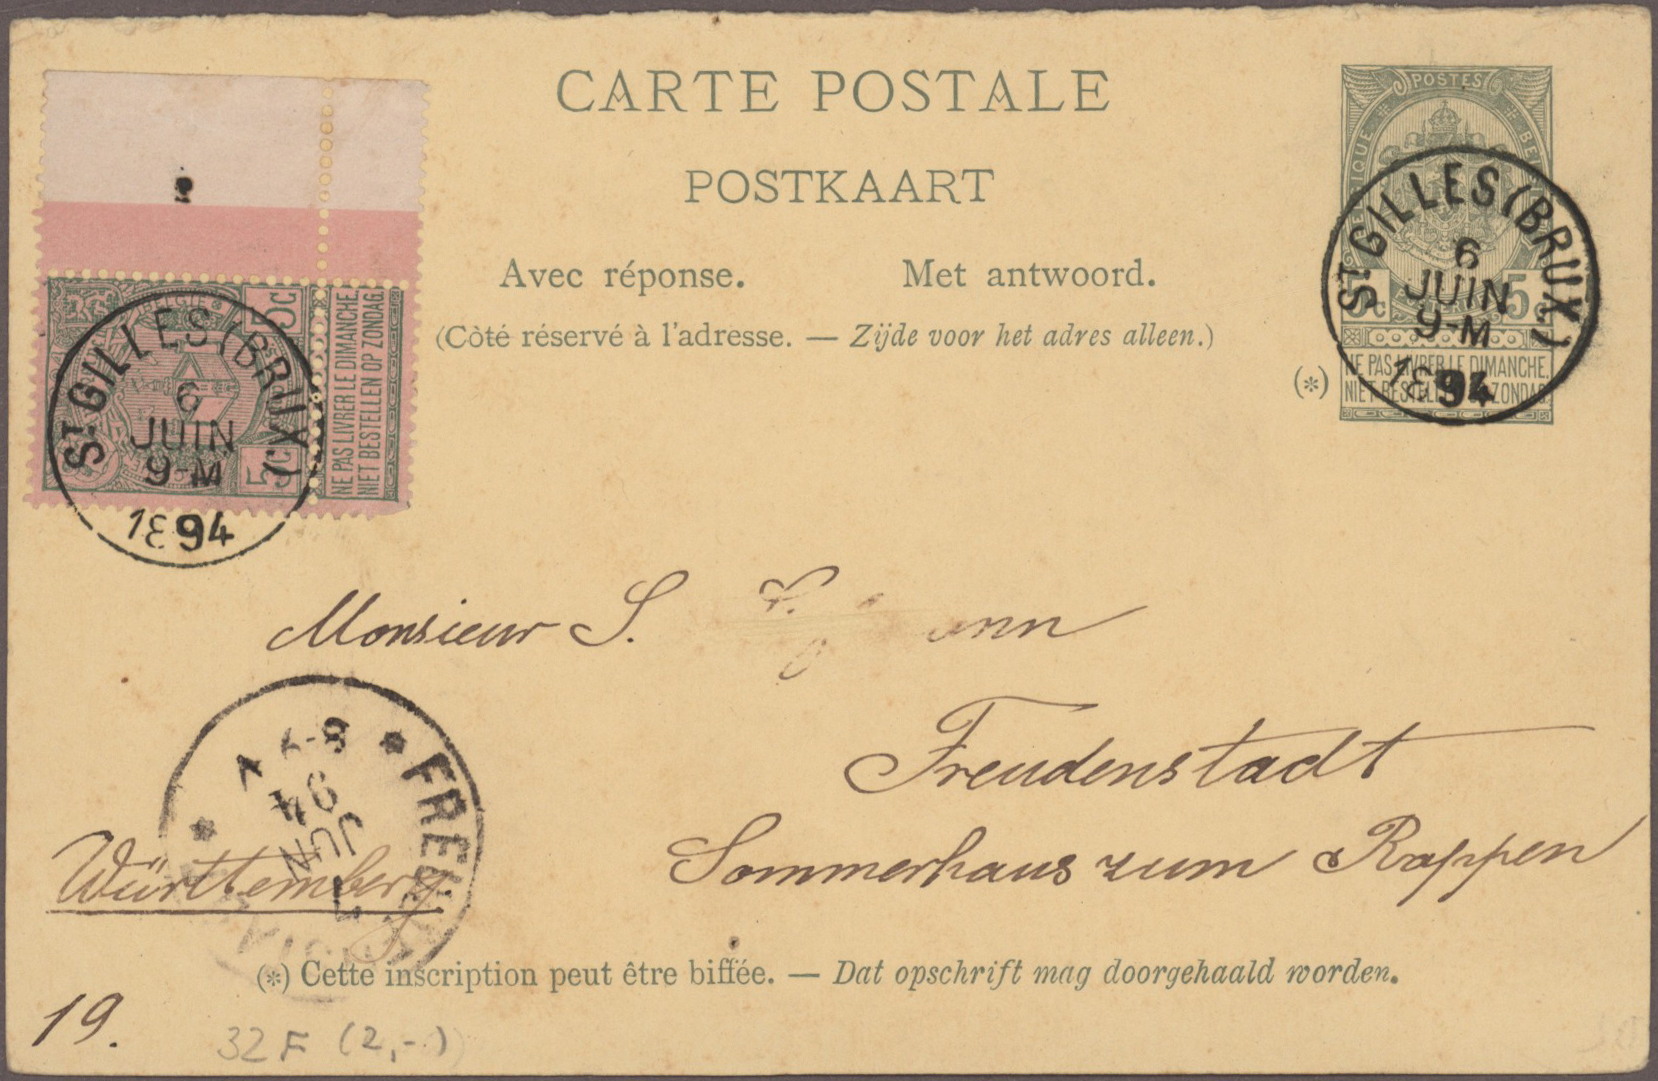 CARTE POSTALE
POSTKAART
Avec réponse. Met antwoord.
(Côté réservé à l'adresse. — Zijde voor het adres alleen.)
POSTES
5 c
NE PAS LIVRER LE DIMANCHE.
NIET BESTELLEN OP ZONDAG.
(*)
ST GILLES (BRUX)
6
JUIN
9-M
1894
BELGIE
5c
5c
NE PAS LIVRER LE DIMANCHE.
NIET BESTELLEN OP ZONDAG.
ST GILLES (BRUX)
6
JUIN
9-M
1894
Monsieur S.
Freudenstadt
Sommerhaus zum Rappen
Württemberg
7
JUN
94
(*) Cette inscription peut être biffée. — Dat opschrift mag doorgehaald worden.
19.
32F (2,-)